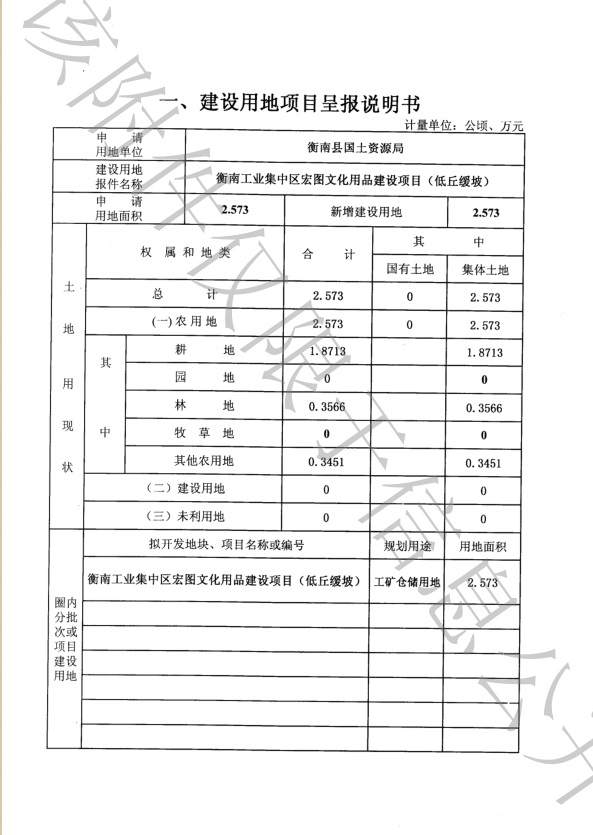 一、建设用地项目呈报说明书
计量单位：公顷、万元
申 请
用地单位
衡南县国土资源局
建设用地
报件名称
衡南工业集中区宏图文化用品建设项目（低丘缓坡）
申 请
用地面积
2.573 新增建设用地 2.573
土地用现状
权 属 和 地 类 合 计 其 中
国有土地 集体土地
总 计 2.573 0 2.573
(一)农用地 2.573 0 2.573
其中
耕 地 1.8713 1.8713
园 地 0 0
林 地 0.3566 0.3566
牧 草 地 0 0
其他农用地 0.3451 0.3451
（二）建设用地 0 0
（三）未利用地 0 0
圈内
分批
次或
项目
建设
用地
拟开发地块、项目名称或编号 规划用途 用地面积
衡南工业集中区宏图文化用品建设项目（低丘缓坡） 工矿仓储用地 2.573
该附件仅限于信息公开